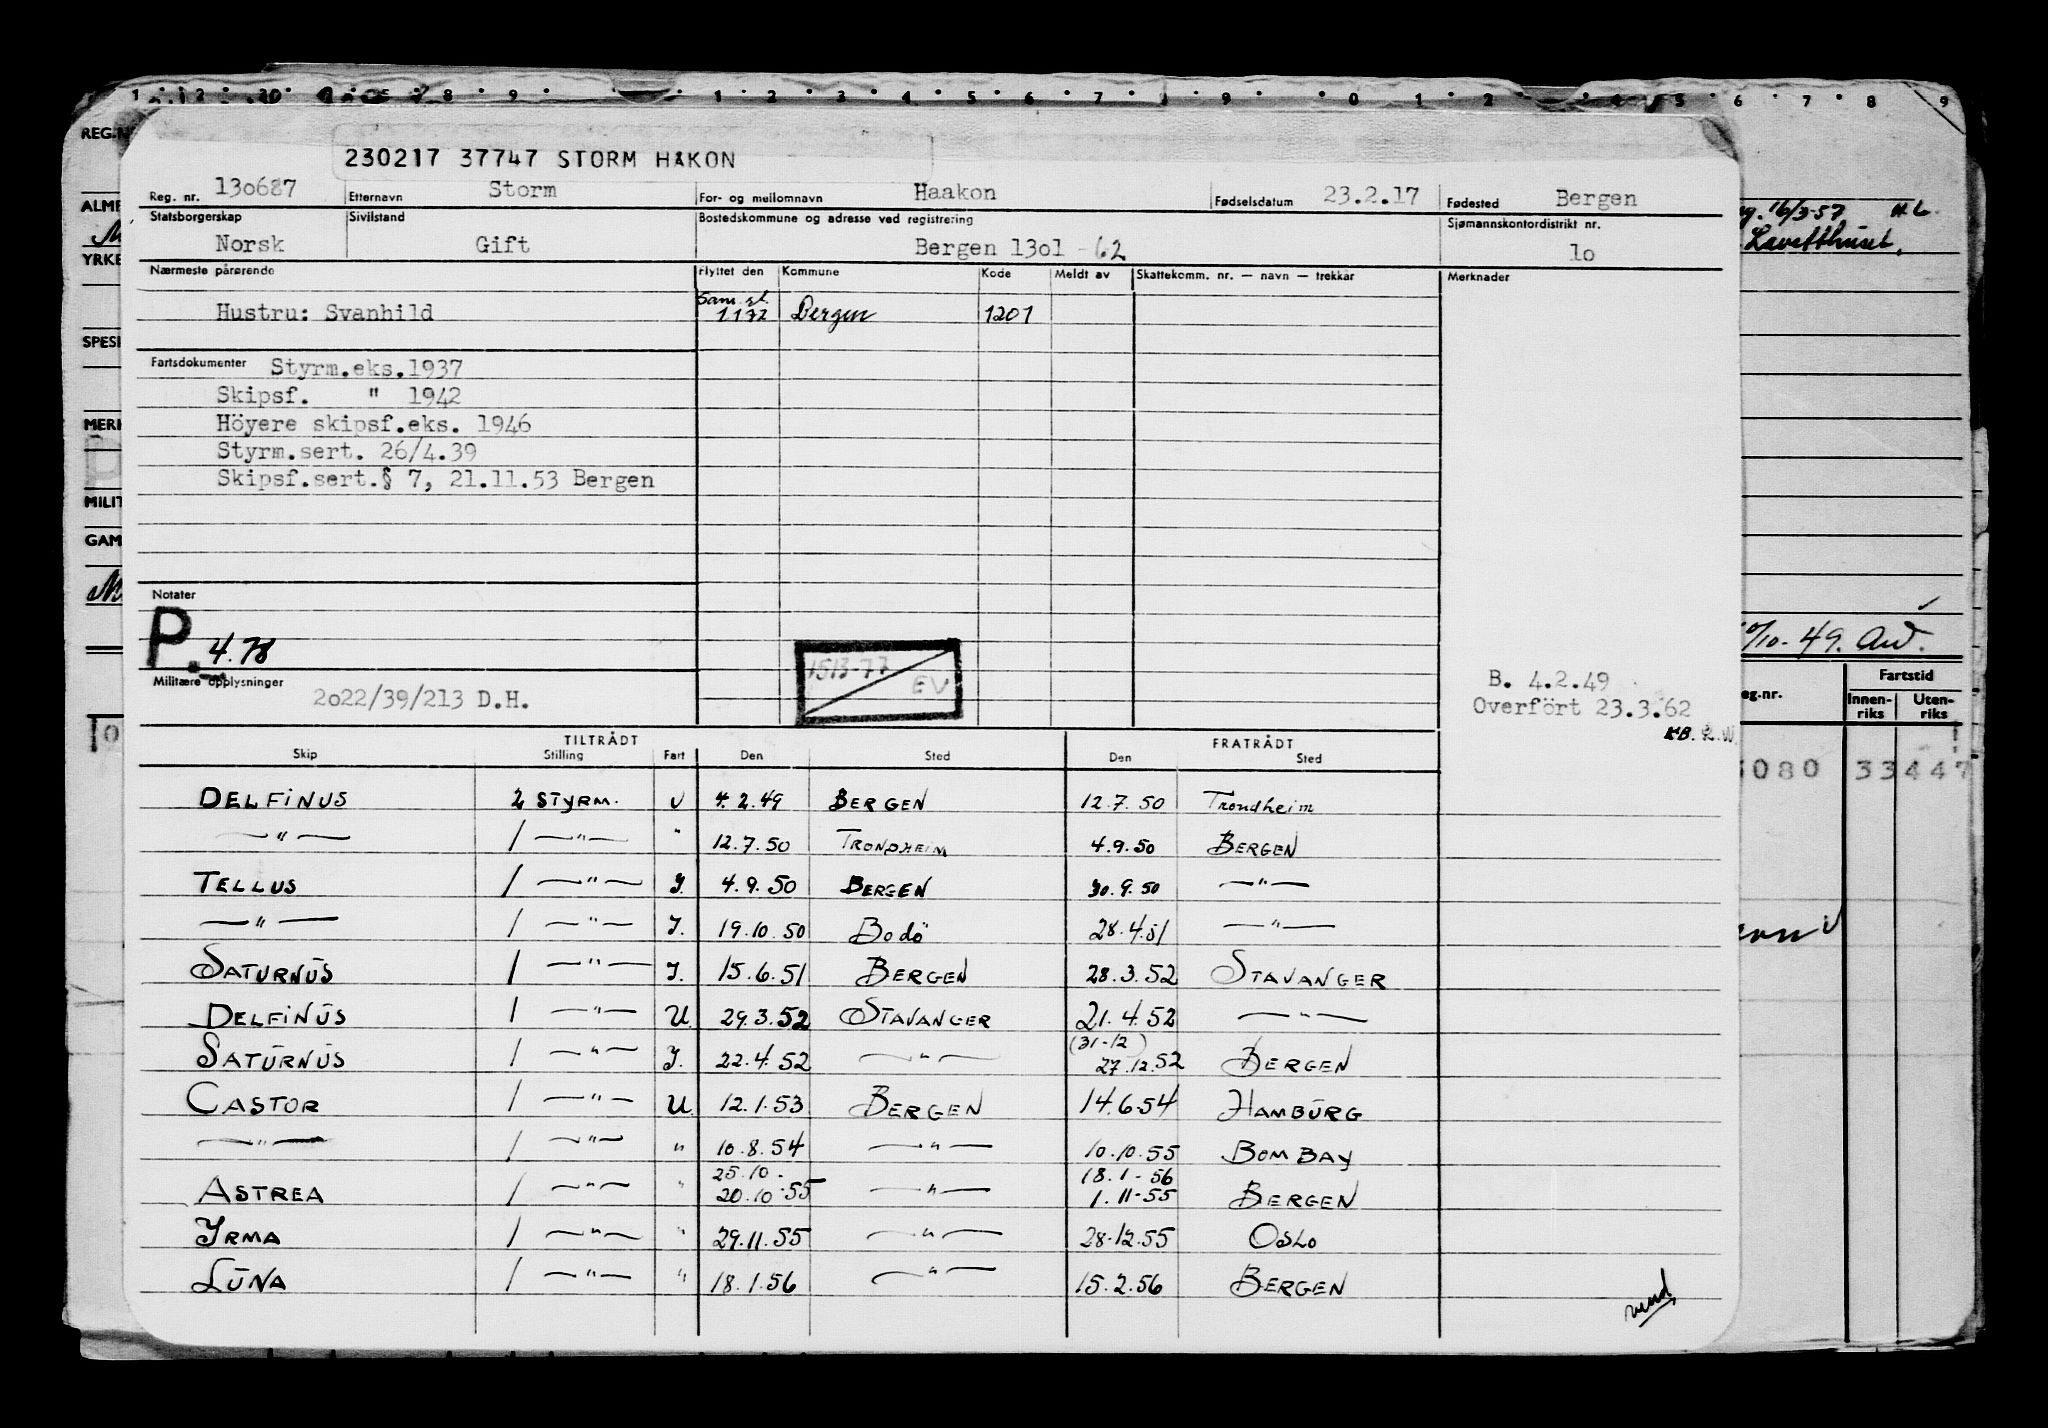 1 2 8 9 1 2 3 4 5 6 7 9 0 1 2 4 5 6 7 8 9
REG.N
230217 37747 STORM HAKON
Reg. nr. 130687 Etternavn Storm For- og mellomnavn Haakon Fødselsdatum 23.2.17 Fødested Bergen
Statsborgerskap Sivilstand Bostedskommune og adresse ved registrering Sjømannskontordistrikt nr.
Norsk Gift Bergen 13o1 -62 lo
Nærmeste pårørende Flyttet den Kommune Kode Meldt av Skattekomm. nr. — navn — trekkår Merknader
Hustru: Svanhild 1172 Bergen 1201
Fartsdokumenter Styrm.eks.1937
Skipsf. " 1942
Höyere skipsf.eks. 1946
Styrm.sert. 26/4.39
Skipsf.sert.§ 7, 21.11.53 Bergen
Notater
P. 4.78
1513-77 EV
Militære opplysninger
2o22/39/213 D.H.
B. 4.2.49
Overfört 23.3.62
KB. R.W.
TILTRÅDT FRATRÅDT
Skip Stilling Fart Den Sted Den Sted
DELFINUS 2 STYRM. U 4.2.49 BERGEN 12.7.50 Trondheim
—"— 1 —"— " 12.7.50 TRONDHEIM 4.9.50 BERGEN
TELLUS 1 —"— I. 4.9.50 BERGEN 30.9.50 —"—
—"— 1 —"— I. 19.10.50 Bodö 28.4.51 —"—
SATURNUS 1 —"— I. 15.6.51 BERGEN 28.3.52 STAVANGER
DELFINUS 1 —"— U. 29.3.52 STAVANGER 21.4.52 —"—
SATURNUS 1 —"— I. 22.4.52 —"— (31-12) 27.12.52 BERGEN
CASTOR 1 —"— U. 12.1.53 BERGEN 14.6.54 HAMBURG
—"— 1 —"— " 10.8.54 —"— 10.10.55 BOMBAY
25.10- 18.1-56
ASTREA 1 —"— " 20.10.55 —"— 1.11-55 BERGEN
IRMA 1 —"— " 29.11.55 —"— 28.12.55 OSLO
LUNA 1 —"— " 18.1.56 —"— 15.2.56 BERGEN
vend
ALME
YRKE
SPESI
MERK
MILIT
GAM
16/3-57 H.L.
Lavetthuset.
10/10-49.
Fartstid
eg.nr. Innen-riks Uten-riks
080 33447